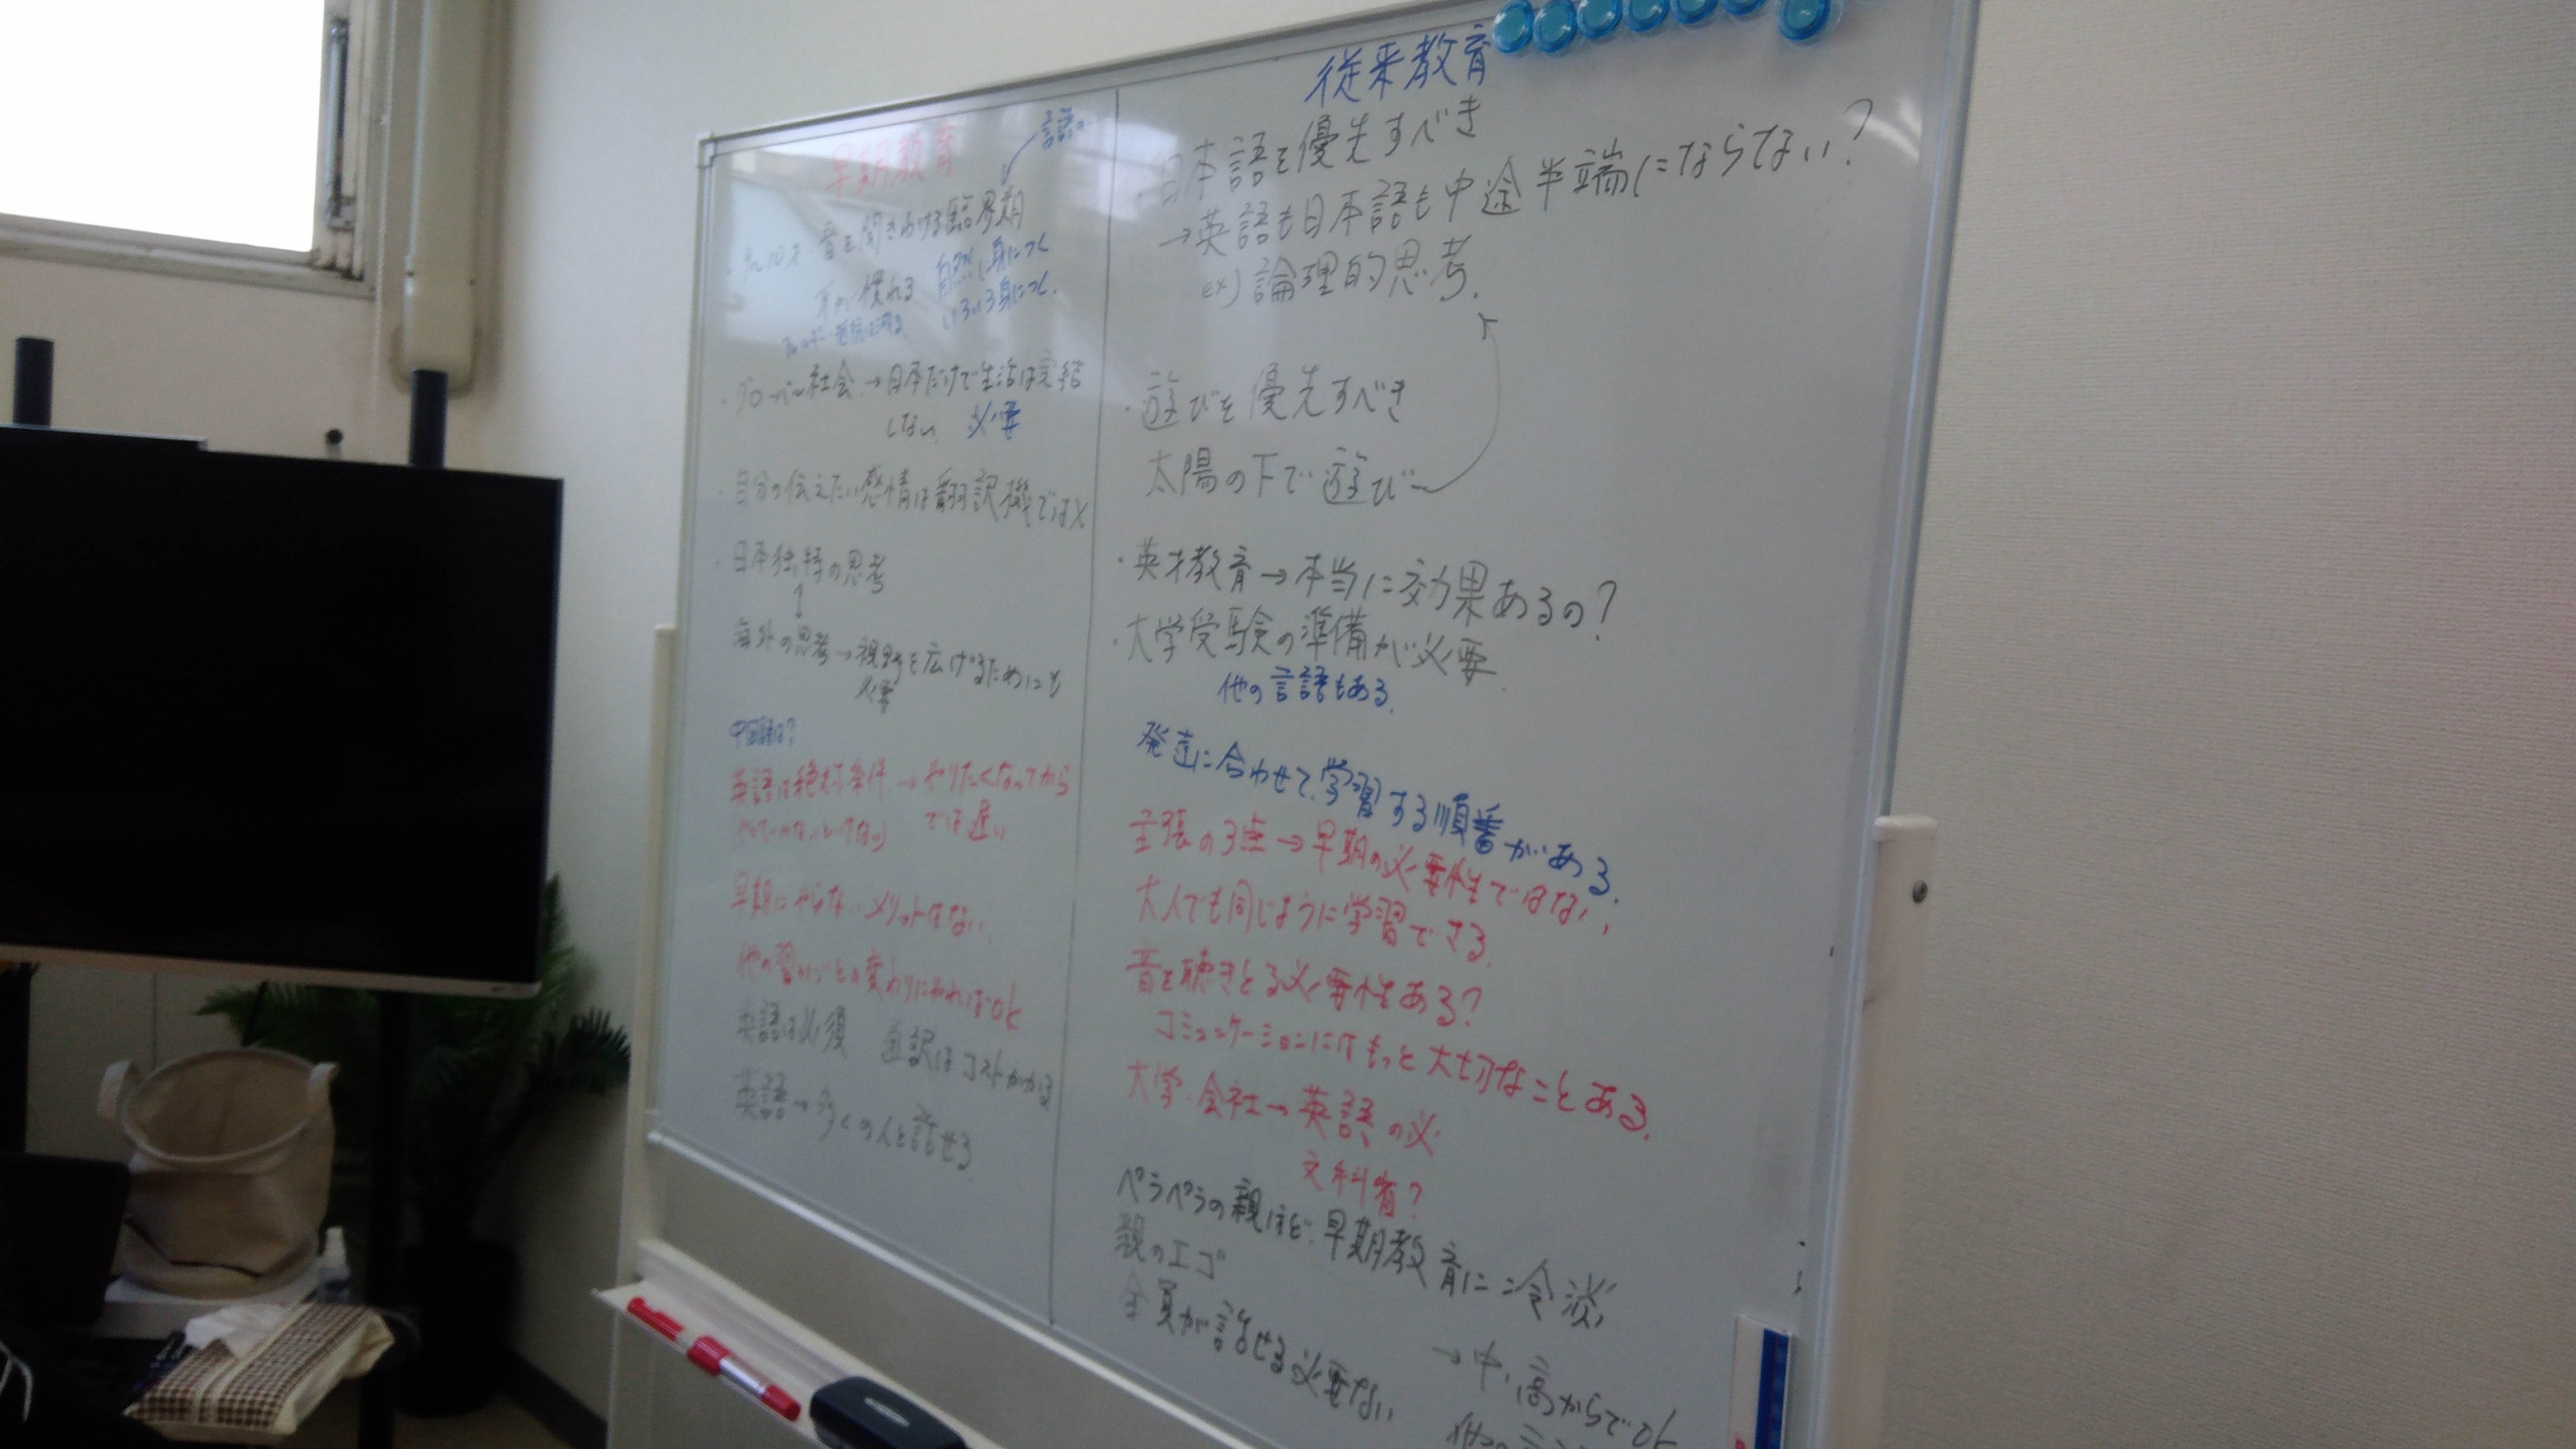 早期教育
言語の
音を聞きわける臨界期
耳が慣れる 自然に身につく
いろいろ身につく。
・グローバル社会→日本だけで生活は完結
しない 必要
・自分の伝えたい感情は翻訳機では×
・日本独特の思考
↕
海外の思考→視野を広げるためにも
必要
中国語は?
英語は絶対条件→やりたくなってから
では遅い
早期にやらないメリットはない
他の習いごとの変わりにやればok
英語は必須 通訳はコストかかる
英語→多くの人と話せる
従来教育
・日本語を優先すべき
→英語も日本語も中途半端にならない?
ex)論理的思考.
・遊びを優先すべき
太陽の下で遊び
・英才教育→本当に効果あるの?
・大学受験の準備が必要.
他の言語もある.
発達に合わせて学習する順番がある.
主張の3点→早期の必要性ではない,
大人でも同じように学習できる.
音を聴きとる必要性ある?
コミュニケーションにはもっと大切なことある.
大学・会社→英語の必
文科省?
ペラペラの親ほど、早期教育に冷淡
親のエゴ
全員が話せる必要ない
→中,高からでok
他の